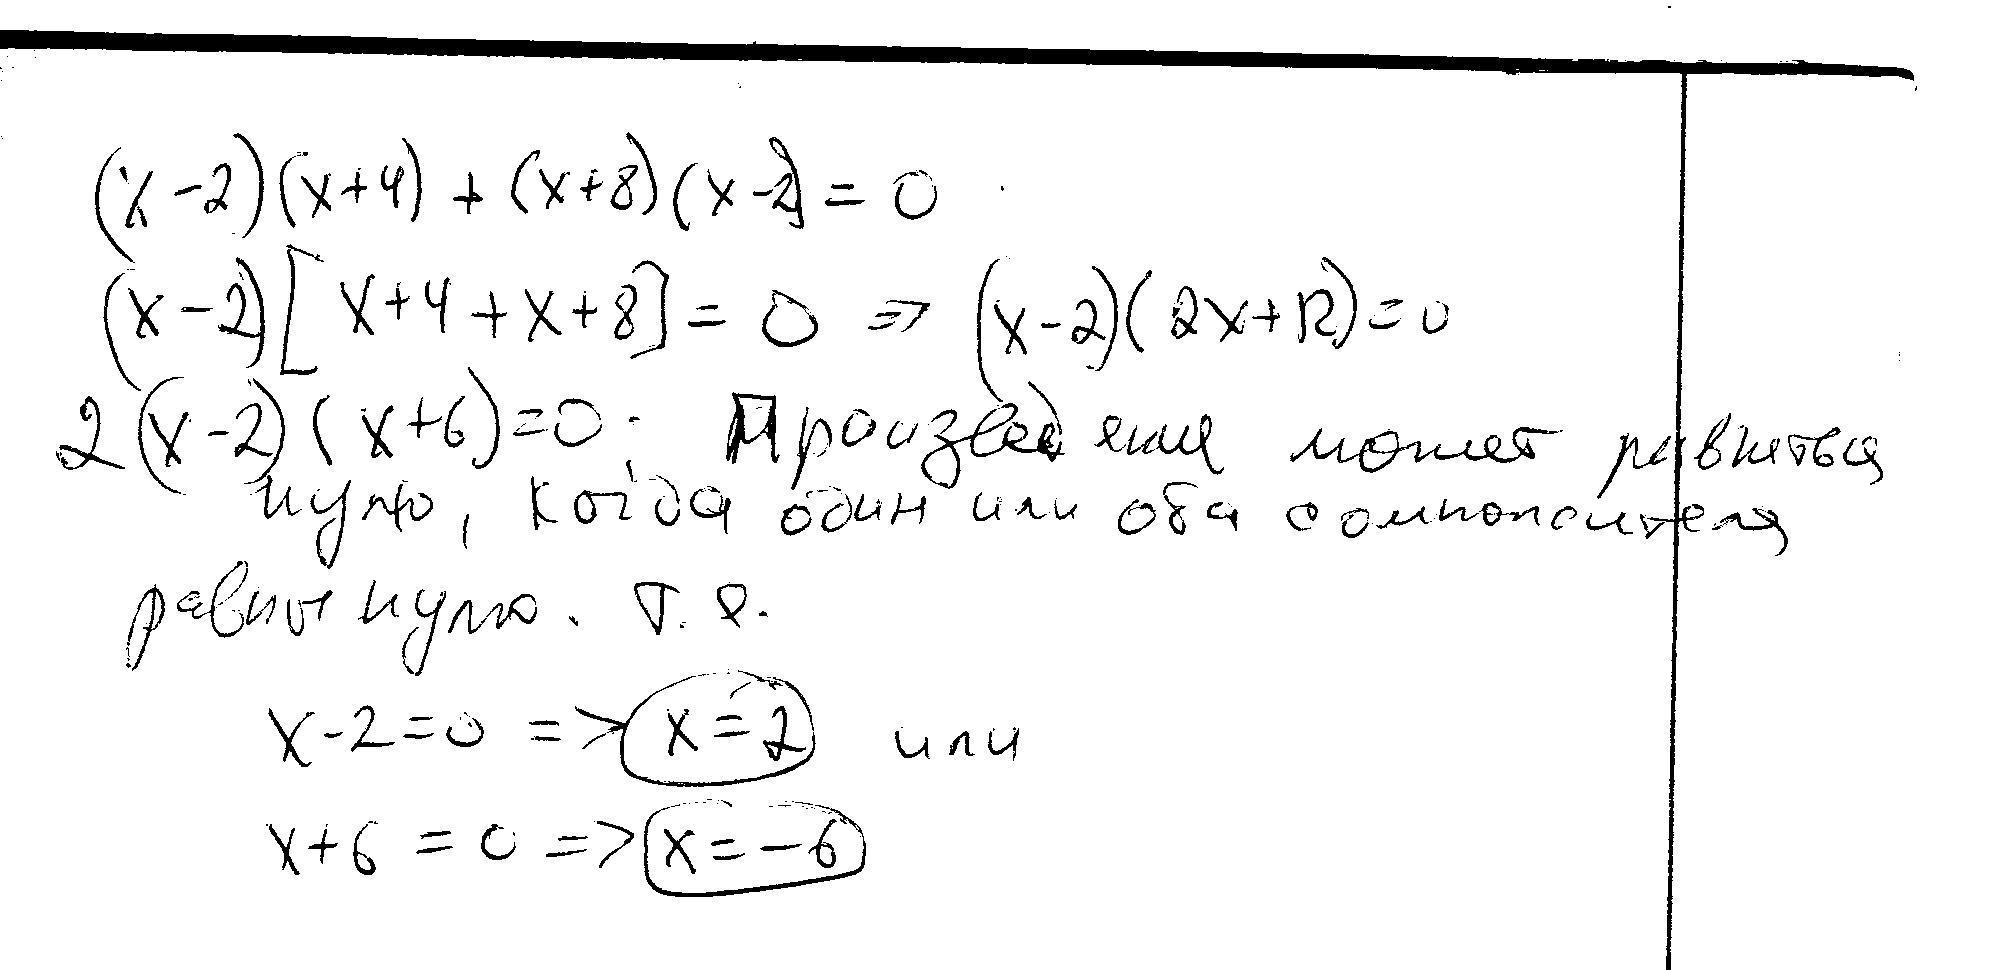 (x-2)(x+4) + (x+8)(x-2) = 0
(x-2)[x+4+x+8] = 0 => (x-2)(2x+12)=0
2(x-2)(x+6)=0. Произведения может равняться
нулю, когда один или оба
равны нулю. т.е.
x-2=0 => x=2 или
x+6=0 => x=-6